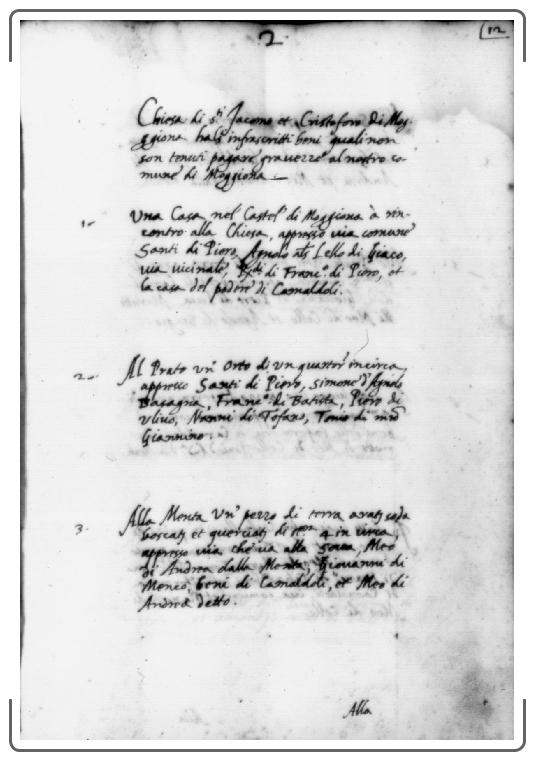 2
12
Chiesa di s.ti Jacomo et Cristoforo di Mog-
giona ha l'infrascritti beni quali non
son tenuti pagare gravezze al nostro co-
mune di Moggiona —
1- Una Casa nel Castel.o di Moggiona à rin-
contro alla Chiesa, appresso via comune
Santi di Piero, Agnolo als Lello di Giaco,
via vicinale, di Franc.o di Piero, et
la casa del podere di Camaldoli.
2. Al Prato un' Orto di un quartor.o incirca,
appresso Santi di Piero, Simone d'Agnolo
Basagna, Franc.o di Batista, Piero di
Ulivo, Nanni di Tofano, Tonio di m.o
Giannino.
3. Alla Menta Un' pezzo di terra soda
boscat; et querciat; di 4 in circa,
appresso via che va alla Meo
di Andrea dalla Menta, Giovanni di
Menco, beni di Camaldoli, et Meo di
Andrea detto.
Alla